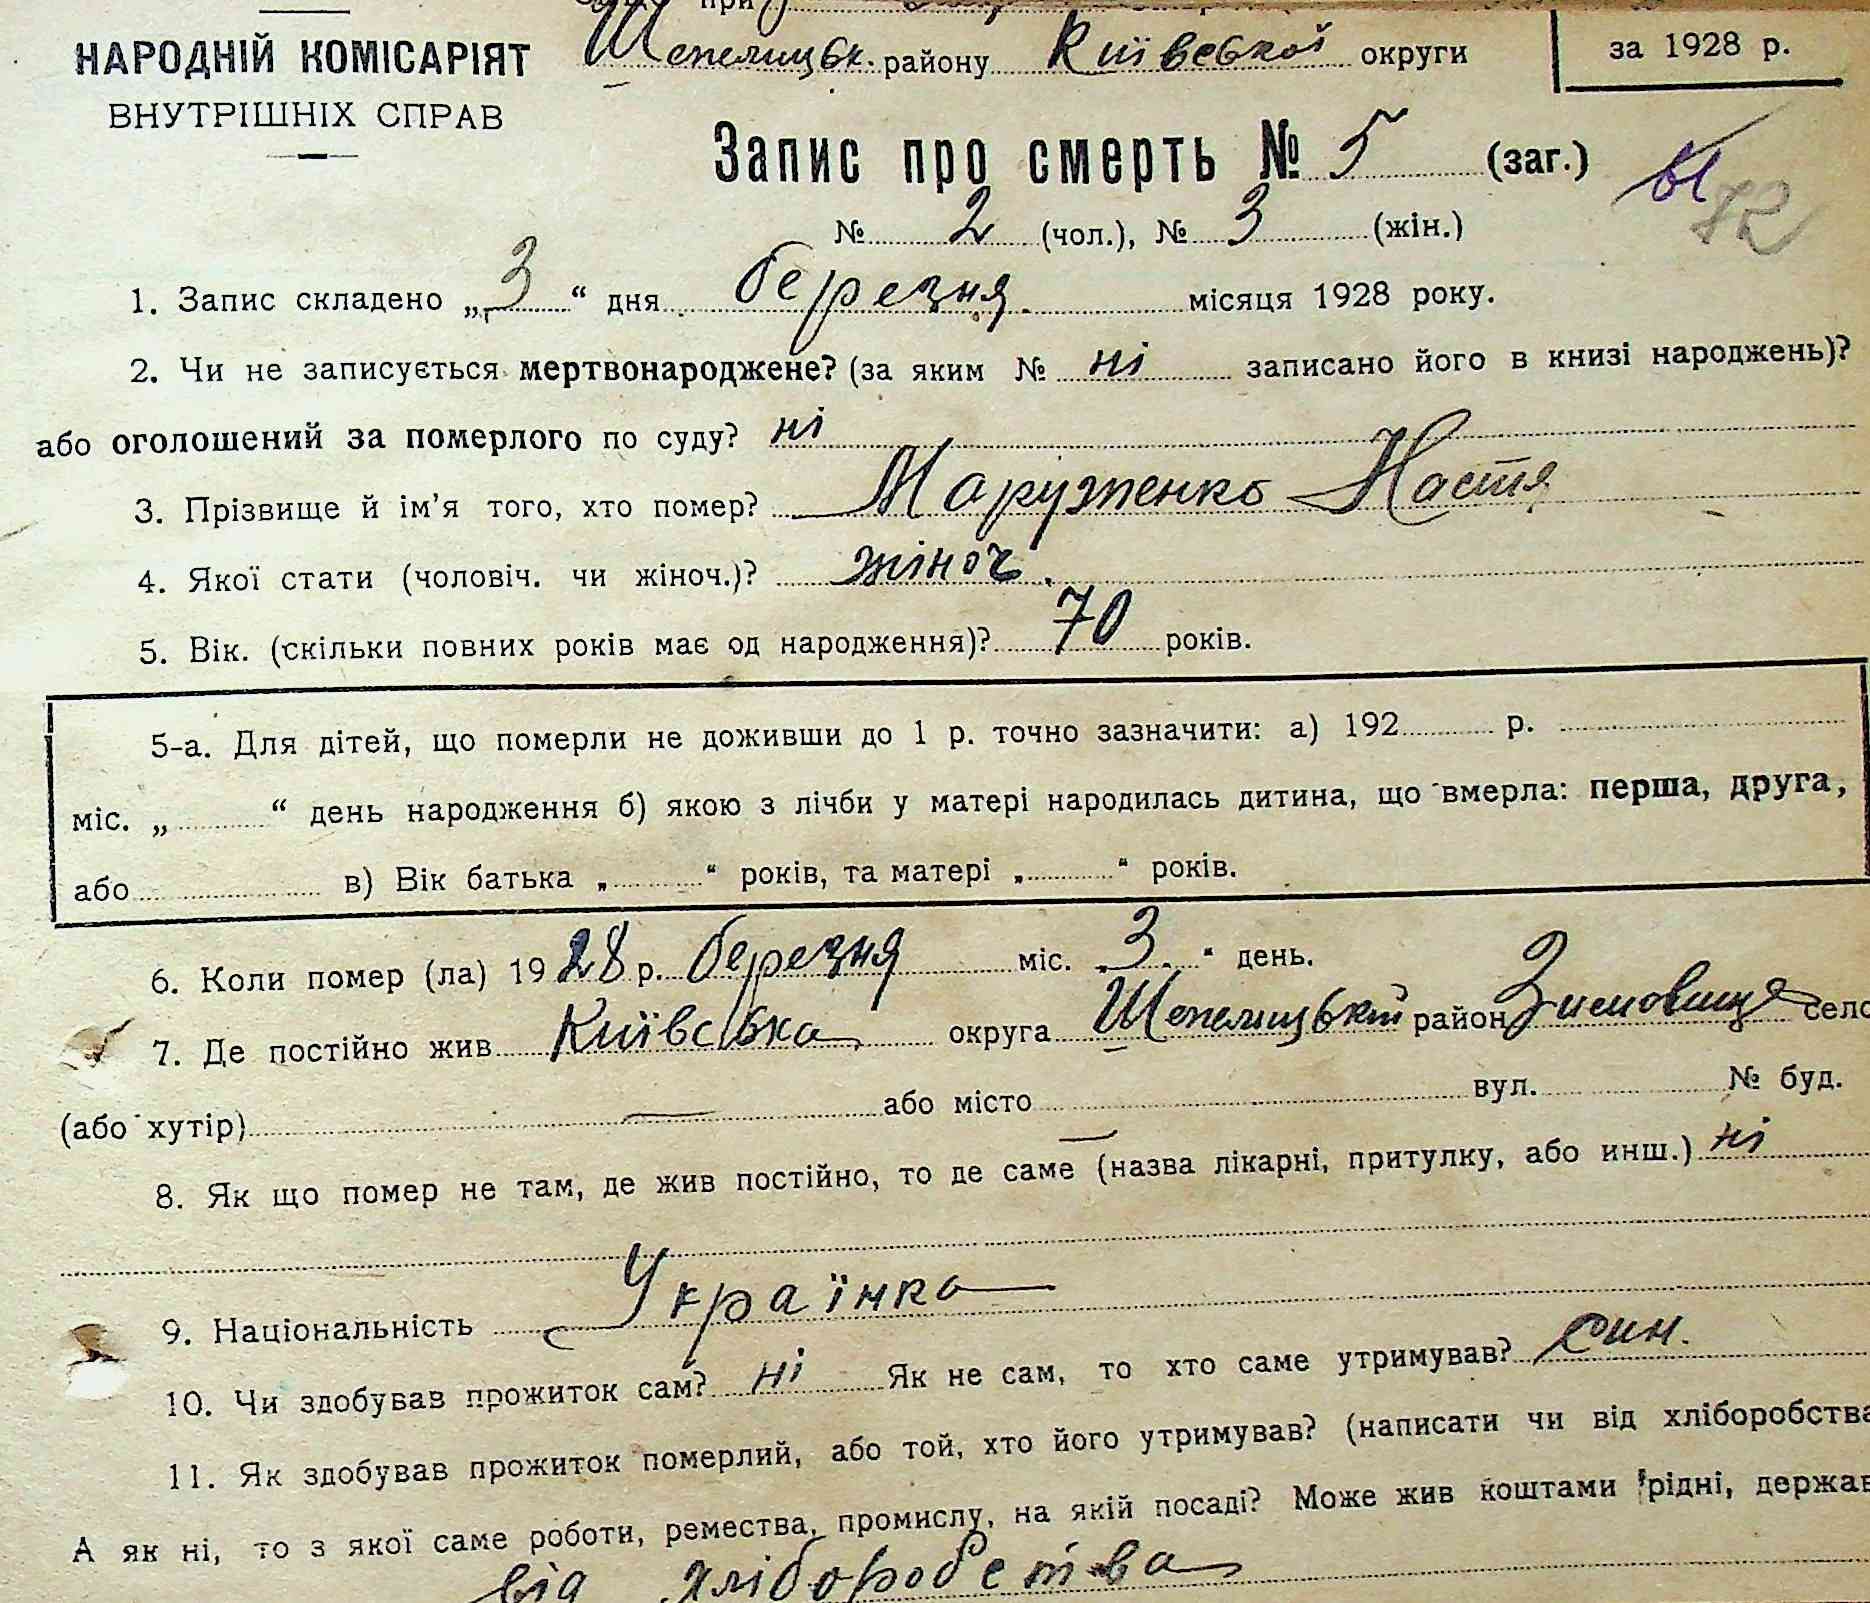 при
НАРОДНІЙ КОМІСАРІЯТ
ВНУТРІШНІХ СПРАВ
Шепелицьк. району Київської округи
за 1928 р.
Запис про смерть № 5 (заг.)
72
№ 2 (чол.), № 3 (жін.)
1. Запис складено „3“ дня березня місяця 1928 року.
2. Чи не записується мертвонароджене? (за яким № ні записано його в книзі народжень)?
або оголошений за померлого по суду? ні
3. Прізвище й ім'я того, хто помер? Маруженко Настя
4. Якої стати (чоловіч. чи жіноч.)? жіноч.
5. Вік. (скільки повних років має од народження)? 70 років.
5-а. Для дітей, що померли не доживши до 1 р. точно зазначити: а) 192 р.
міс. „ “ день народження б) якою з лічби у матері народилась дитина, що вмерла: перша, друга,
або в) Вік батька „ “ років, та матері „ “ років.
6. Коли помер (ла) 1928 р. березня міс. „3.“ день.
7. Де постійно жив Київська округа Шепелицький район Зимовище село
(або хутір) — або місто — вул. № буд.
8. Як що помер не там, де жив постійно, то де саме (назва лікарні, притулку, або инш.) ні
9. Національність Українка
10. Чи здобував прожиток сам? ні Як не сам, то хто саме утримував? син.
11. Як здобував прожиток померлий, або той, хто його утримував? (написати чи від хліборобства
А як ні, то з якої саме роботи, ремества, промислу, на якій посаді? Може жив коштами рідні, держав
від хліборобства